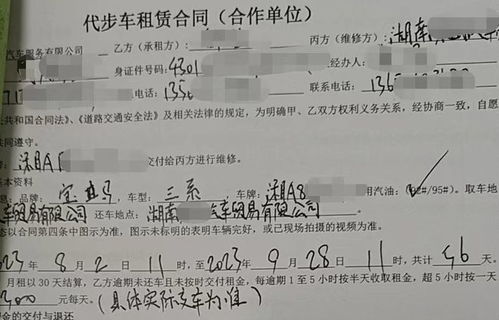 代步车租赁合同（合作单位）
汽车服务有限公司 乙方（承租方）： 丙方（维修方）：湖南
身证件号码：4301 经办人：
电话：135 联系电话：136
共和国合同法》、《道路交通安全法》及相关法律的规定，为明确甲、乙双方权利义务关系，经协商一致，自愿
共同遵守。
：湘A 交付给丙方进行维修。
基本资料
品牌：宝马 车型：三系，车牌：湘A8 用汽油：（92#/95#）。取车地
车贸易有限公司 还车地点：湖南 汽车贸易有限公司
态以合同第四条中图示为准，图示未标明的表明车辆完好，或已现场拍摄的视频为准。
23年8月2日11时，至2023年9月28日11时，共计56天
月租以30天结算，乙方逾期未还车且未按时交付租金，每逾期1至5小时按半天收取租金，超5小时按一天
300元每天。（具体实际交车为准）
金的交付与退还